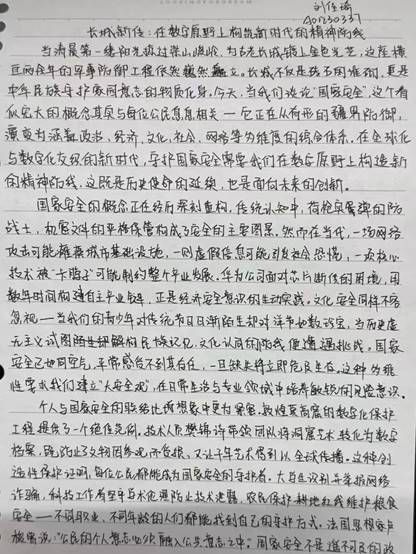 刘佳瑞
40230337
长城新任：在数字原野上构筑新时代的精神防线
当清晨第一缕阳光掠过燕山峻岭，为古老长城镀上金色光芒，这座横
亘两千余年的军事防御工程依然巍然矗立。长城不仅是砖石的堆砌，更是
中华民族守护家园意志的物质化身。今天，当我们谈论"国家安全"，这个看
似宏大的概念其实与每位公民息息相关——它正在从有形的疆界防御，
演变为涵盖政治、经济、文化、社会、网络等多维度的综合体系。在全球化
与数字化交织的新时代，守护国家安全需要我们在数字原野上构造新
的精神防线，这既是历史使命的延续，也是面向未来的创新。
国家安全的概念正在经历深刻重构，传统认知中，荷枪实弹的边防
战士，机密文件的严格保管构成了安全的主要图景。然而在当代，一场网络
攻击可能瘫痪城市基础设施，一则虚假信息可能引发社会恐慌，一项核心
技术被"卡脖子"可能制约整个产业发展。华为公司面对芯片断供的困境，用
数年时间构建自主产业链，正是经济安全意识的生动实践。文化安全同样不容
忽视——当我们的青少年对传统节日日渐陌生却对洋节如数家珍，当历史虚
无主义试图解构民族记忆，文化认同的防线便遭遇挑战。国家
安全已如同空气，平常感觉不到其存在，一旦缺失将立即危及生存。这种多维
性要求我们建立"大安全观"，在日常生活与专业领域中培养敏锐的风险意识。
个人与国家安全的联结比预想象中更为紧密，敦煌莫高窟的数字化保护
工程提供了一个绝佳范例。技术人员樊锦诗带领团队将洞窟艺术转化为数字
档案，既防止文物因参观而受损，又让千年艺术得到以全球传播。这种创
造性保护证明，每位公民都能成为国家安全的守护者。大学生识别并举报网络
诈骗，科技工作者坚守不泄密防止技术泄露，农民保护耕地红线维护粮食
安全——不同职业、不同年龄的人们都能找到自己的守护方式。法国思想家卢
梭曾说："公民的个人意志必须融入公共意志之中。"国家安全不是遥不可及的政